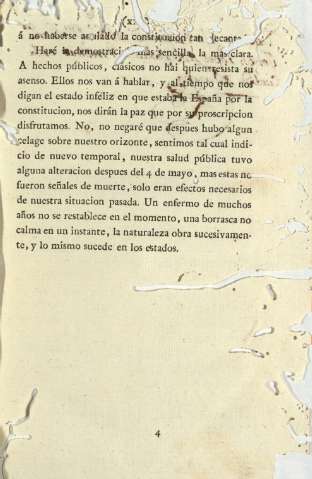 (x)
á no haberse anulado la constitucion tan decanta
Haré la demostracion mas sencilla, la mas clara.
A hechos públicos, clásicos no hai quien resista su
asenso. Ellos nos van á hablar, y al tiempo que nos
digan el estado infeliz en que estaba la España por la
constitucion, nos dirán la paz que por su proscripcion
disfrutamos. No, no negaré que despues hubo algun
celage sobre nuestro orizonte, sentimos tal cual indi-
cio de nuevo temporal, nuestra salud pública tuvo
alguna alteracion despues del 4 de mayo, mas estas no
fueron señales de muerte, solo eran efectos necesarios
de nuestra situacion pasada. Un enfermo de muchos
años no se restablece en el momento, una borrasca no
calma en un instante, la naturaleza obra sucesivamen-
te, y lo mismo sucede en los estados.
4